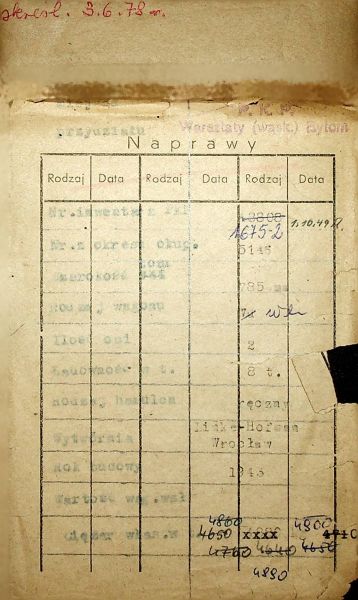 skresl. 3.6.78 r.
przydziału
P.K.P.
Warsztaty (wąsk.) Bytom
Naprawy
Rodzaj Data Rodzaj Data Rodzaj Data
Nr.inwentarz PKP 3808 1.10.49
1675-2
Nr.z okresu okup. 5145
Szerokość toru 785 mm
Rodzaj wagonu
Ilość osi 2
Ładowność w t. 8 t.
Rodzaj hamulca ręczny
Wytwórnia Linke-Hofman
Wrocław
Rok budowy 1943
Wartość wag.wał
Ciężar włas.w 4800 4900
4650 xxxx 4710
4760 4640 4650
4890